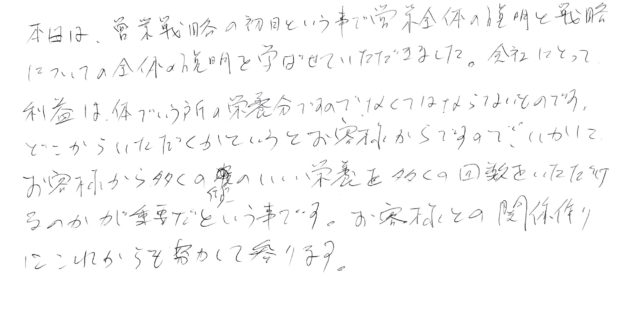 本日は、営業戦略の初日という事で営業全体の説明と戦略
についての全体の説明を学ばせていただきました。会社にとって
利益は、体でいう所の栄養分ですので、なくてはならないものです。
どこからいただくかというとお客様からですので、いかにして
お客様から多くの質のいい栄養を多くの回数をいただけ
るのかが重要だという事です。お客様との関係作り
にこれからも努力して参ります。